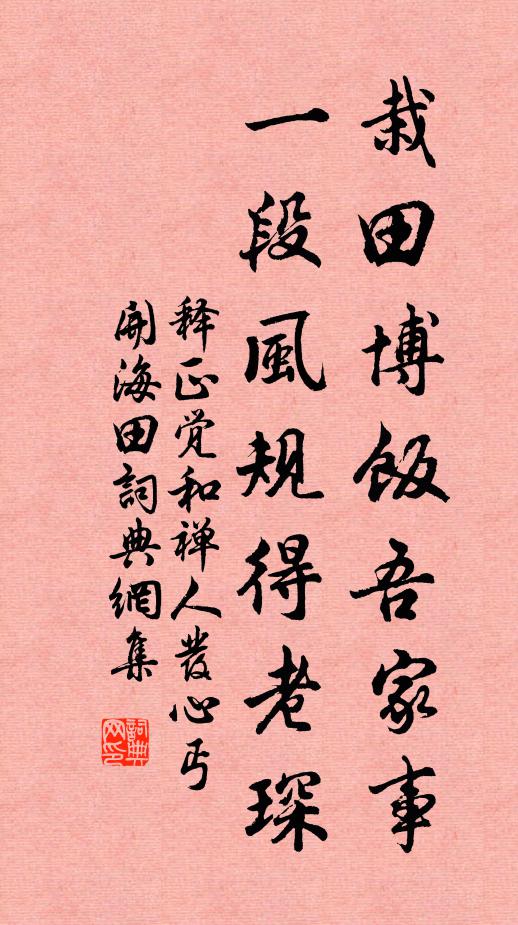 栽田博飯吾家事
一段風規得老琛
释正觉和禅人發心丐
開海田詞典網集
詞典网印